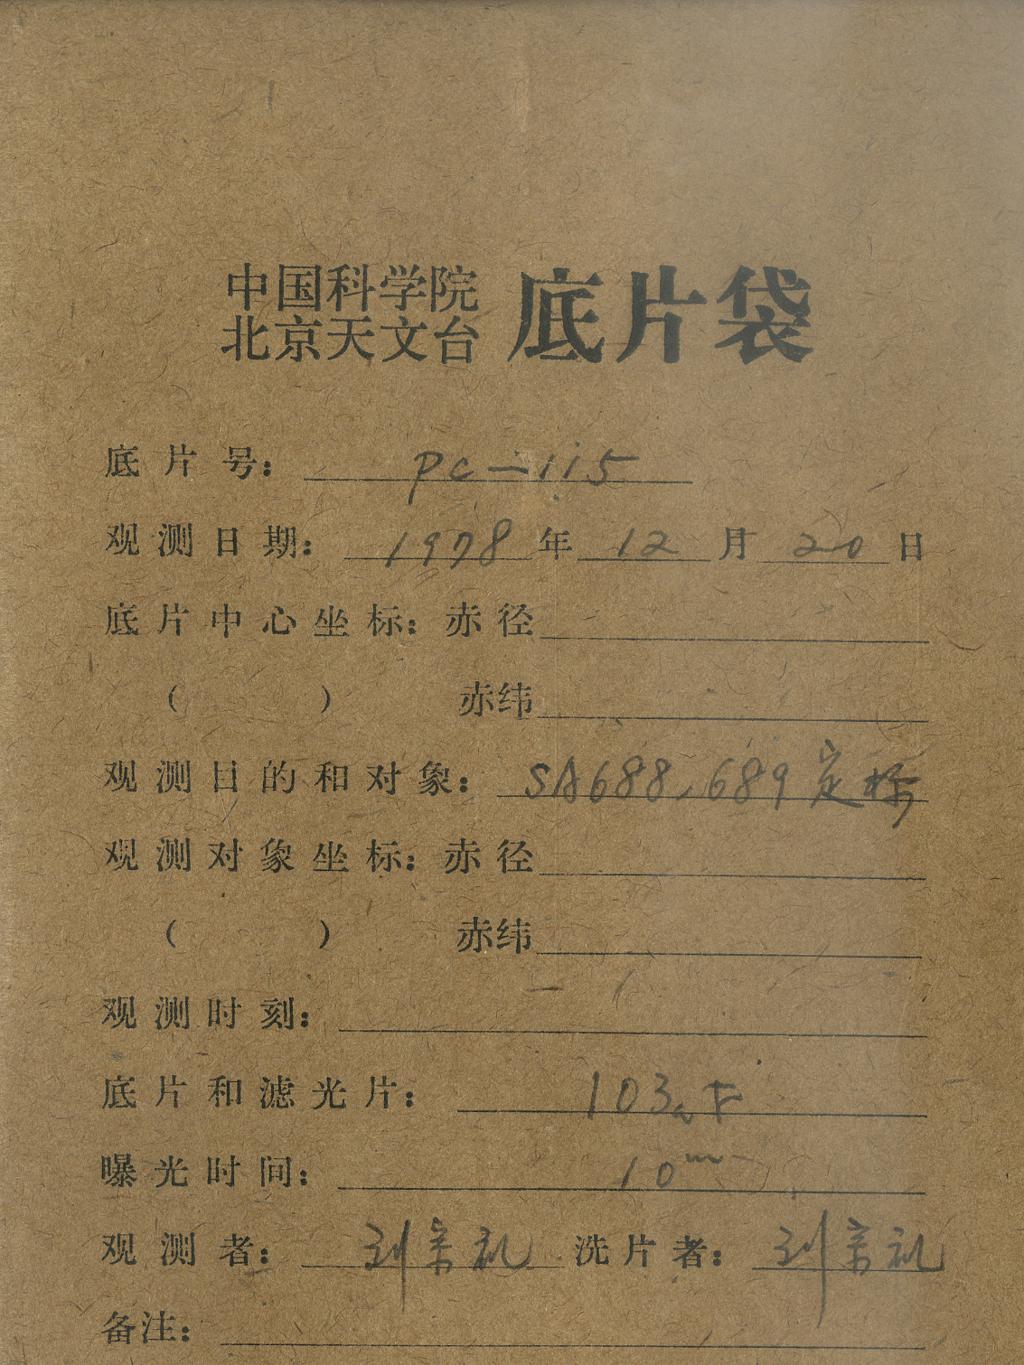 中国科学院
北京天文台 底片袋
底片号: pc-115
观测日期: 1978 年 12 月 20 日
底片中心坐标: 赤径
( ) 赤纬
观测目的和对象: SA688、689 定标
观测对象坐标: 赤径
( ) 赤纬
观测时刻:
底片和滤光片: 103aF
曝光时间: 10m
观测者: 刘宗礼 洗片者: 刘宗礼
备注: